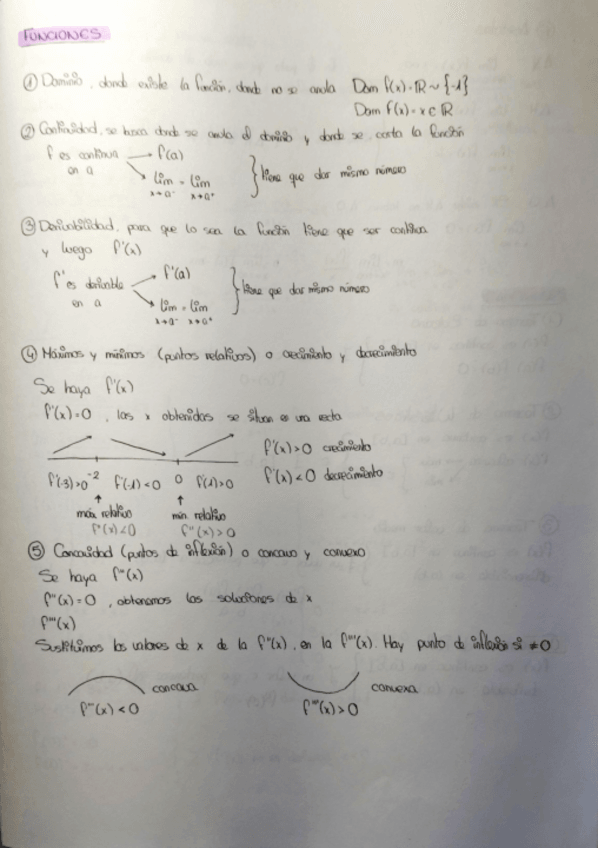 FUNCIONES
① Dominio, donde existe la función, donde no se anula Dom f(x) = ℝ ~ {-1}
Dom f(x) = x ∈ ℝ
② Continuidad, se busca donde se anula el dominio y donde se corta la función
f es continua → f(a)
en a → lim = lim } tiene que dar mismo número
x→a⁻ x→a⁺
③ Derivabilidad, para que lo sea la función tiene que ser continua
y luego f'(x)
f' es derivable → f'(a)
en a → lim = lim } tiene que dar mismo número
x→a⁻ x→a⁺
④ Máximos y mínimos (puntos relativos) o crecimiento y decrecimiento
Se haya f'(x)
f'(x)=0, las x obtenidas se situan es una recta
f'(-3)>0 -2 f'(-1)<0 0 f'(1)>0
f'(x)>0 crecimiento
f'(x)<0 decrecimiento
↑ ↑
máx. relativo min. relativo
f''(x)<0 f''(x)>0
⑤ Concavidad (puntos de inflexión) o concavo y convexo
Se haya f''(x)
f''(x)=0, obtenemos las soluciones de x
f'''(x)
Sustituimos los valores de x de la f''(x), en la f'''(x). Hay punto de inflexión si ≠0
concava convexa
f''(x)<0 f''(x)>0